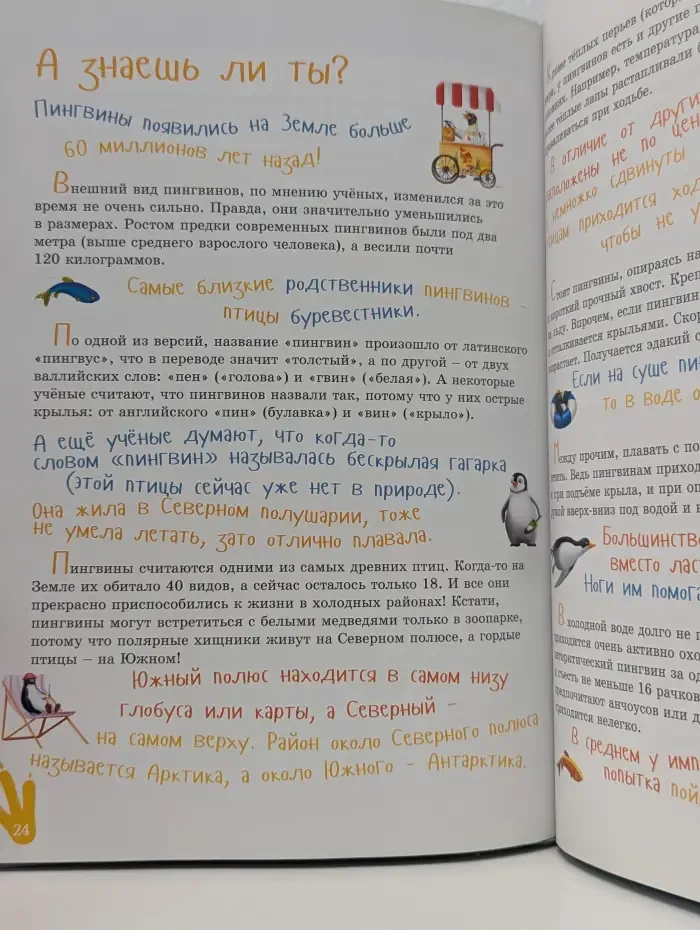 А знаешь ли ты?
Пингвины появились на Земле больше
60 миллионов лет назад!
Внешний вид пингвинов, по мнению учёных, изменился за это
время не очень сильно. Правда, они значительно уменьшились
в размерах. Ростом предки современных пингвинов были под два
метра (выше среднего взрослого человека), а весили почти
120 килограммов.
Самые близкие родственники пингвинов –
птицы буревестники.
По одной из версий, название «пингвин» произошло от латинского
«пингвус», что в переводе значит «толстый», а по другой – от двух
валлийских слов: «пен» («голова») и «гвин» («белая»). А некоторые
учёные считают, что пингвинов назвали так, потому что у них острые
крылья: от английского «пин» (булавка») и «вин» («крыло»).
А ещё учёные думают, что когда-то
словом «пингвин» называлась бескрылая гагарка
(этой птицы сейчас уже нет в природе).
Она жила в Северном полушарии, тоже
не умела летать, зато отлично плавала.
Пингвины считаются одними из самых древних птиц. Когда-то на
Земле их обитало 40 видов, а сейчас осталось только 18. И все они
прекрасно приспособились к жизни в холодных районах! Кстати,
пингвины могут встретиться с белыми медведями только в зоопарке,
потому что полярные хищники живут на Северном полюсе, а гордые
птицы – на Южном!
Южный полюс находится в самом низу
глобуса или карты, а Северный –
на самом верху. Район около Северного полюса
называется Арктика, а около Южного – Антарктика.
24
Кроме тёплых перьев (котор
у пингвинов есть и другие п
Например, температура
тёплые лапы растапливали
при ходьбе.
В отличие от други
расположены не по цен
немножко сдвинуты
приходится ход
чтобы не у
Стоят пингвины, опираясь на
короткий прочный хвост. Креп
льду. Впрочем, если пингвин
отталкивается крыльями. Скор
Получается эдакий с
Если на суше пин
то в воде о
Между прочим, плавать с по
Ведь пингвинам приход
при подъёме крыла, и при оп
вверх-вниз под водой и в
Большинство
вместо ласт
Ноги им помога
В холодной воде долго не п
приходится очень активно охо
антарктический пингвин за од
съесть не меньше 16 рачков
предпочитают анчоусов или д
приходится нелегко.
В среднем у имп
попытка пой